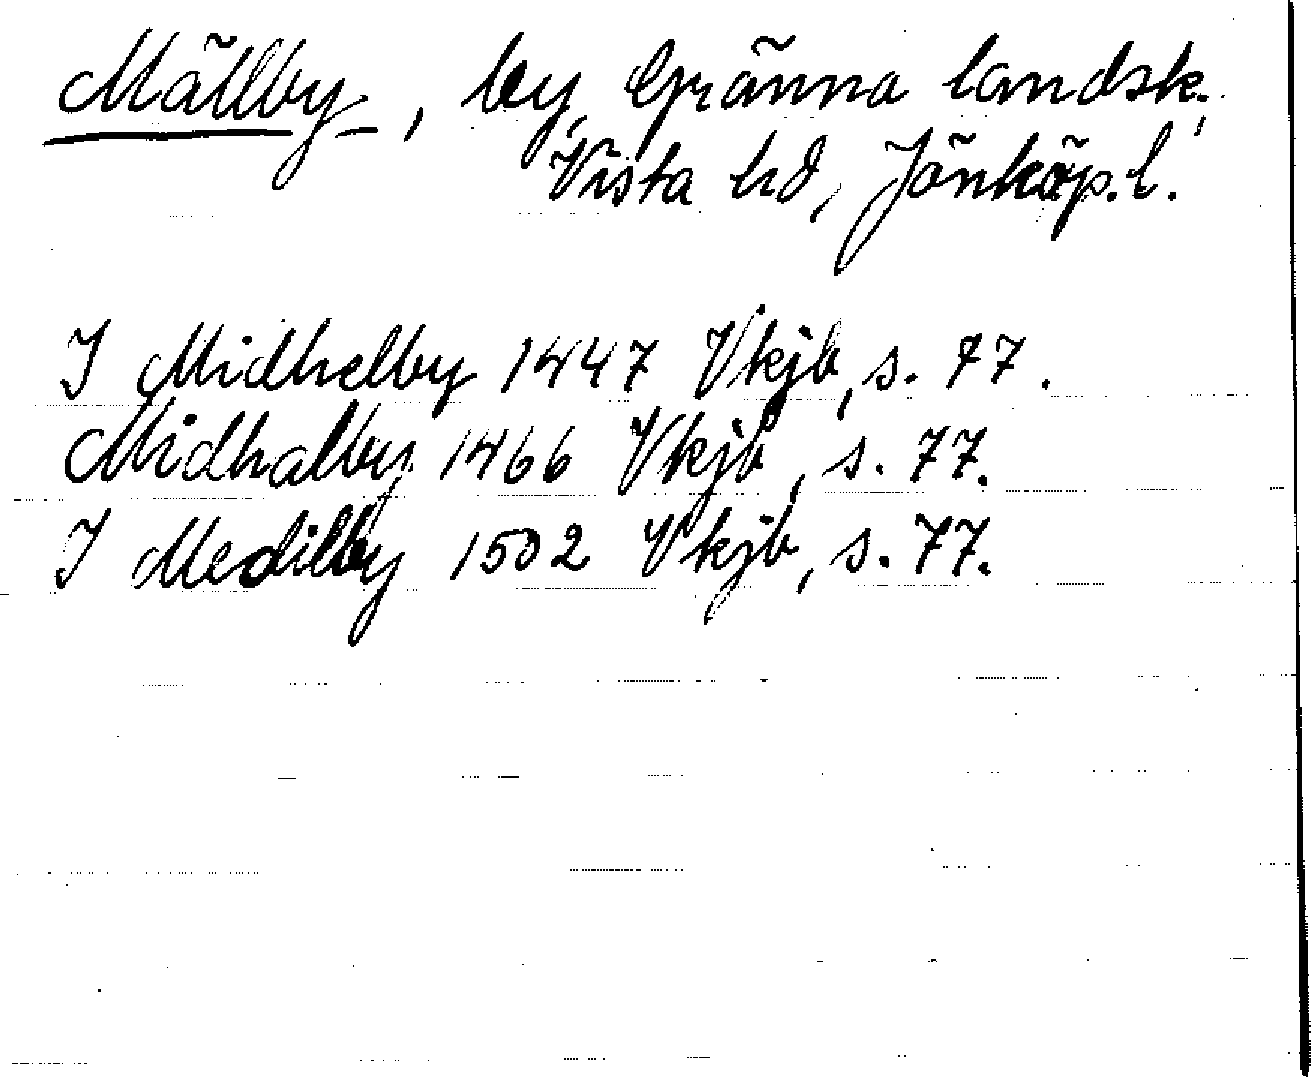 Mällby, by, Gränna landsk.,
Vista hd, Jönköp.l.
I Midhelby 1447 Vkjb, s. 77.
Midhalby 1466 Vkjb, s. 77.
I Medilby 1502 Vkjb, s. 77.